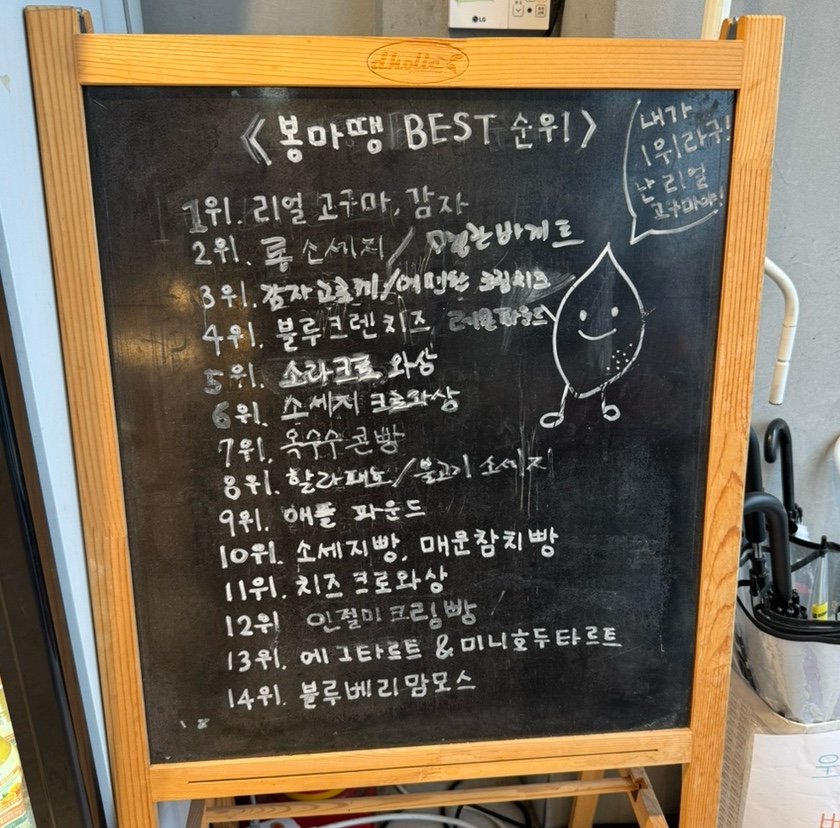 LG
dhoile
〈봉마땡 BEST 순위〉
내가
1위라구!
난 리얼
고구마야!
1위. 리얼 고구마, 감자
2위. 롱 소세지 / 바게트
3위. 감자고로케/어먼드 크림치즈
4위. 블루크렌치즈 레몬파운드
5위. 소라크로 와상
6위. 소세지 크로와상
7위. 옥수수콘빵
8위. 할라피뇨/불고기 소세지
9위. 애플 파운드
10위. 소세지빵, 매운참치빵
11위. 치즈 크로와상
12위 인절미크림빵
13위. 에그타르트 & 미니호두타르트
14위. 블루베리맘모스